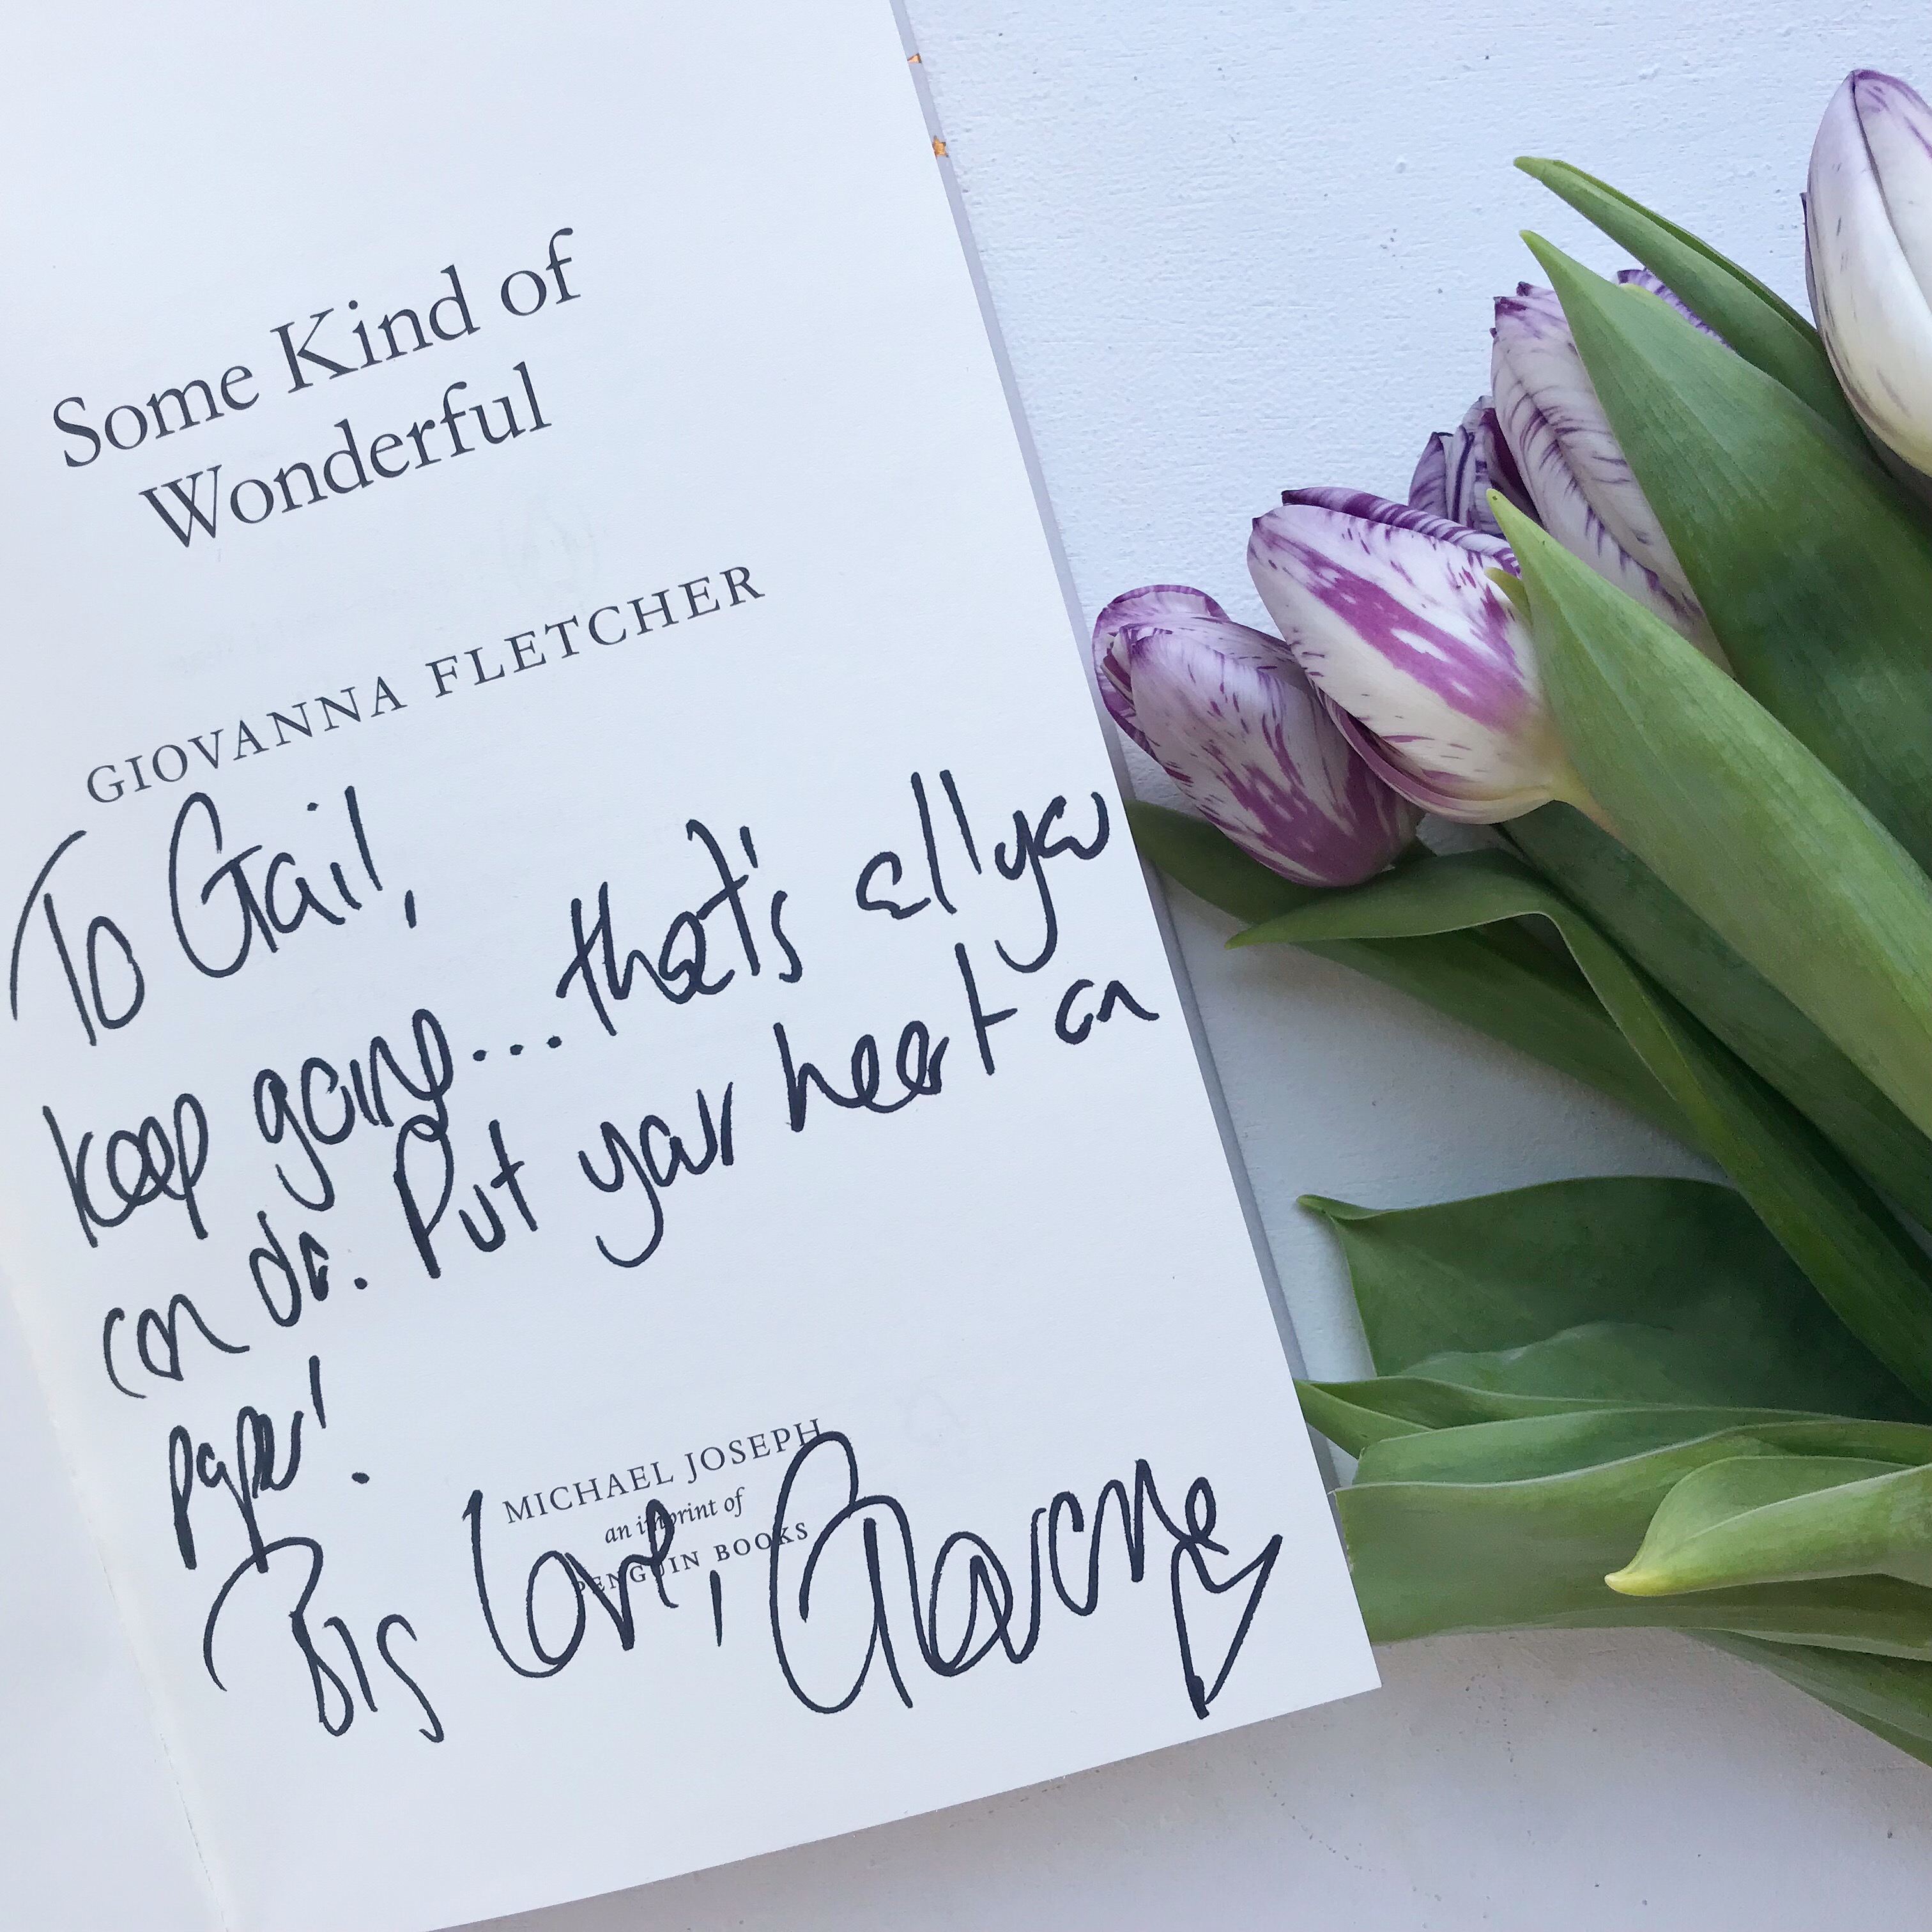 Some Kind of
Wonderful
GIOVANNA FLETCHER
To Gail,
keep going... that's all you
can do. Put your heart on
paper!
MICHAEL JOSEPH
an imprint of
PENGUIN BOOKS
Big Love, Giovanna